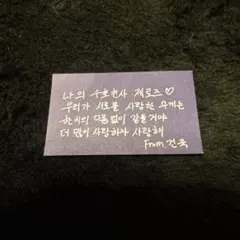 나의 수호천사 제로즈♡
우리가 서로를 사랑한 무게는
한치의 다름없이 같을거야
더 많이 사랑하자 사랑해
From. 건욱